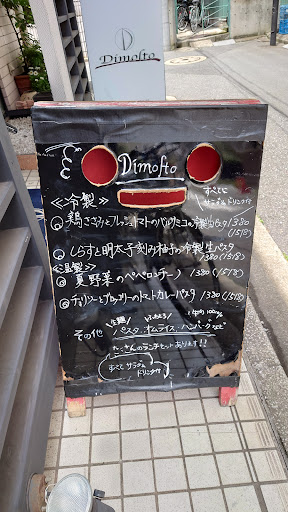 Dimolto
Dimolto
すべてに
サラダ&ドリンク付
≪冷製≫
鶏ささみとフレッシュトマトのバルサミコの冷製生パスタ 1380
(1518)
しらすと明太子刻み柚子の冷製生パスタ
1380(1518)
≪温製≫
夏野菜のペペロンチーノ 1380(1518)
チョリソーとブロッコリーのトマトカレーパスタ 1380(1518)
その他
(生麺)
パスタ・オムライス・ハンバーグなど
たくさんのランチセットあります!!
すべて サラダ&
ドリンク付